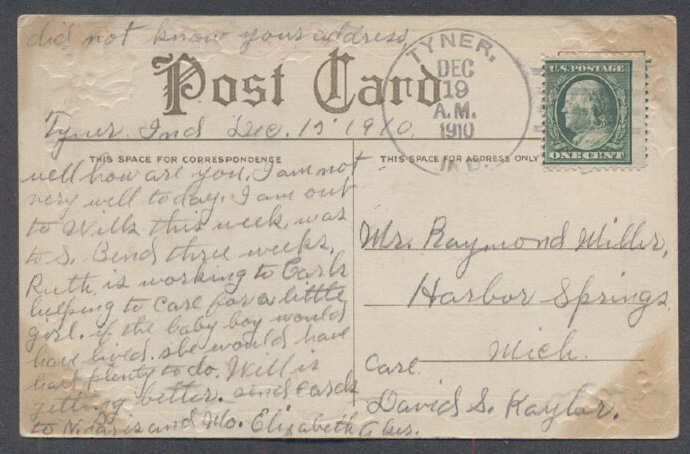 did not know your address,
Post Card
TYNER,
DEC
19
A.M.
1910
IND.
U.S. POSTAGE
ONE CENT
Tyner. Ind Dec. 15' 1910.
THIS SPACE FOR CORRESPONDENCE
THIS SPACE FOR ADDRESS ONLY
well how are you. I am not
very well today. I am out
to Wills this week. was
to S. Bend three weeks.
Ruth is working to Earls
helping to care for a little
girl. if the baby boy would
have lived. she would have
had plenty to do. Will is
getting better. send cards
to and Mo. Elizabeth
Mr. Raymond Miller,
Harbor Springs
Mich.
Care.
David S. Kaylor.